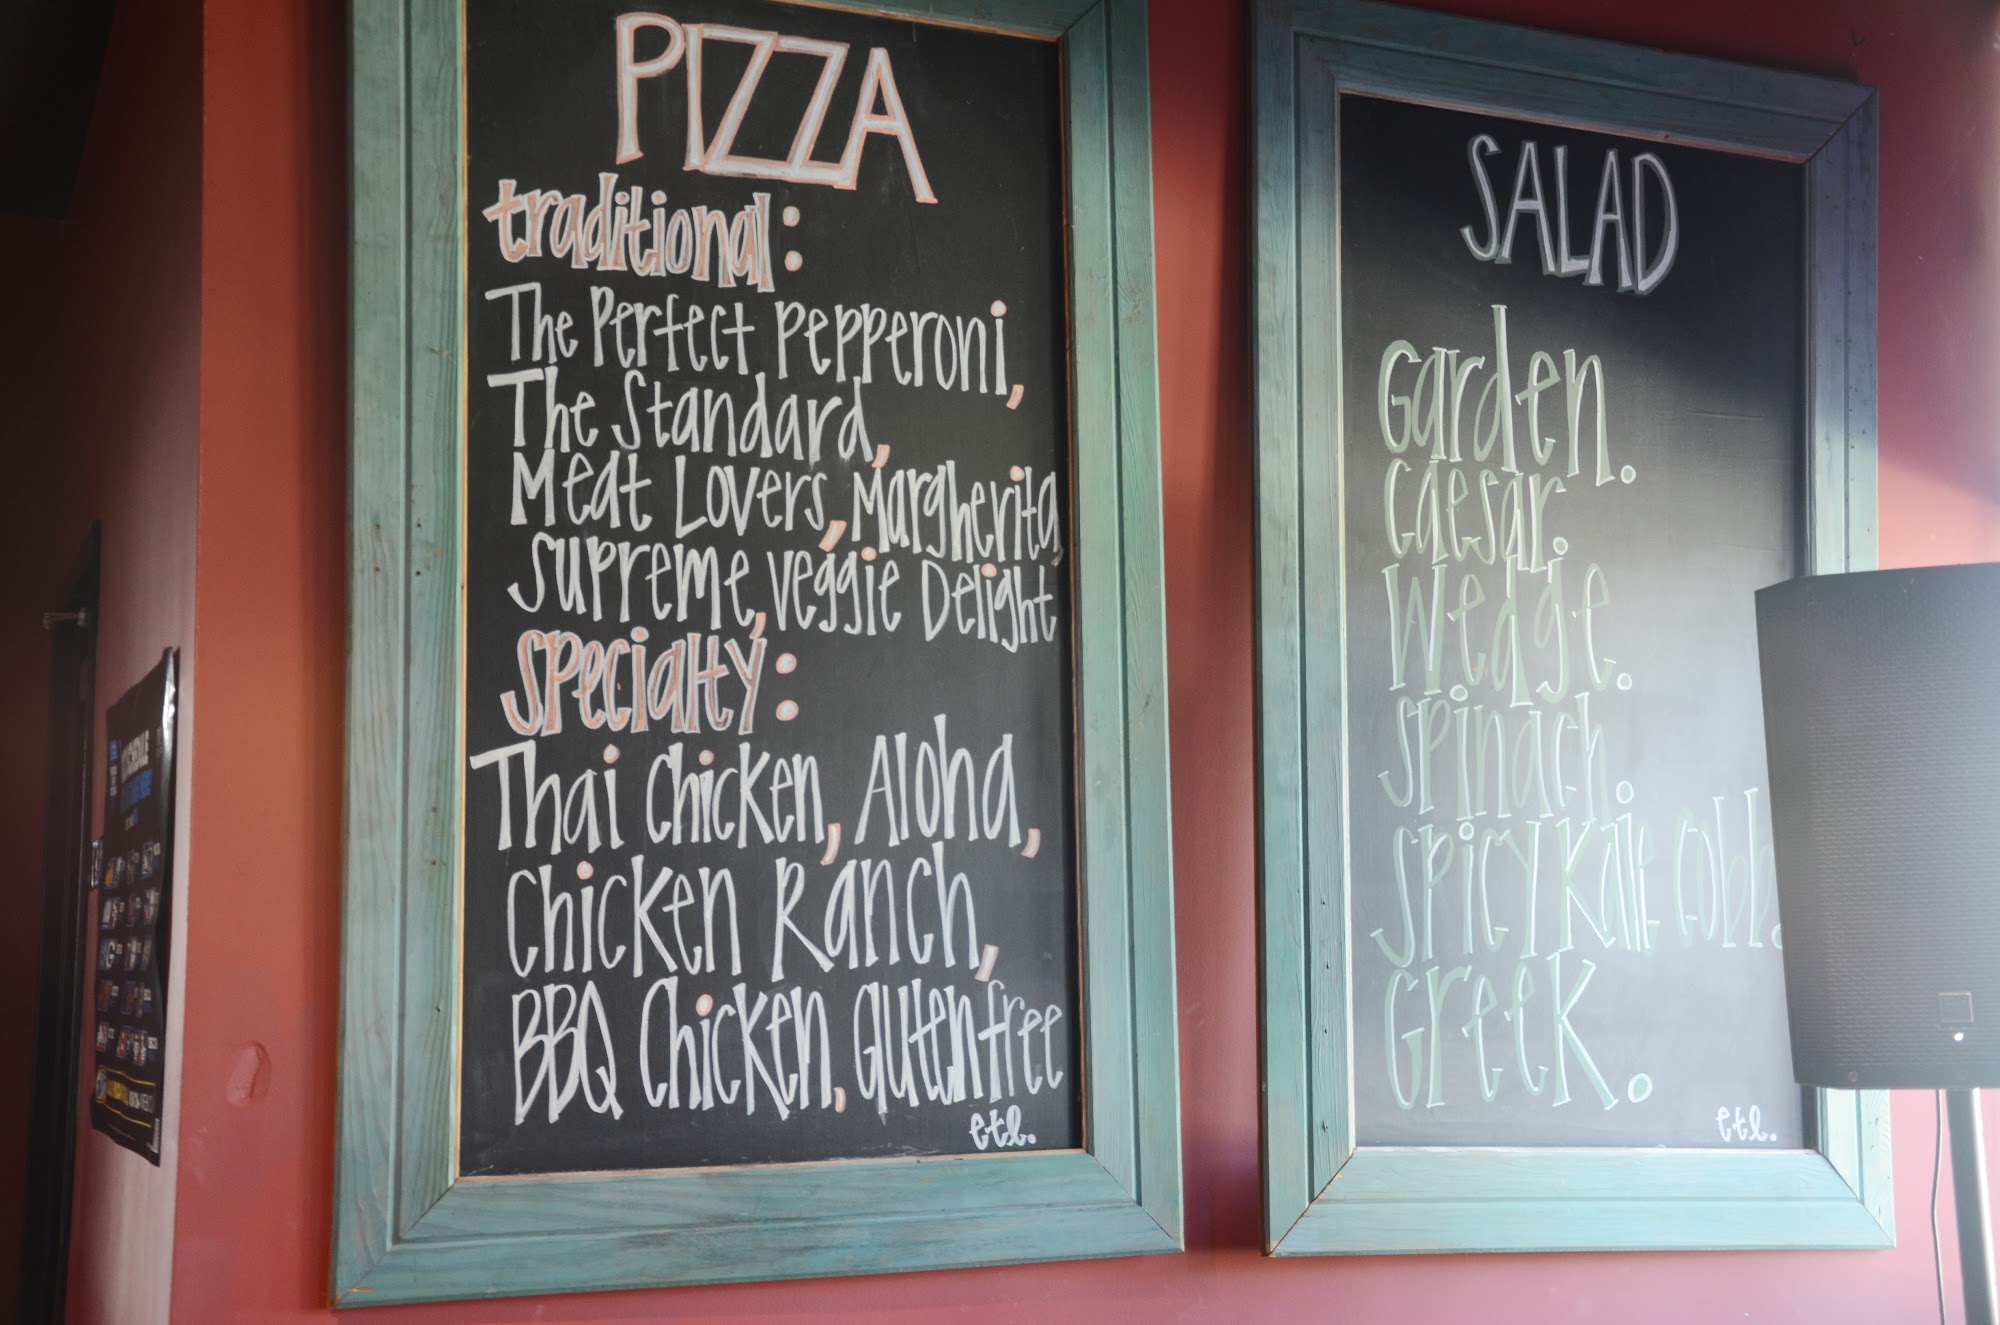 PIZZA
traditional:
The Perfect Pepperoni,
The Standard,
Meat Lovers, Margherita,
Supreme, Veggie Delight
Specialty:
Thai Chicken, Aloha,
Chicken Ranch,
BBQ Chicken, Glutenfree
etl.
SALAD
Garden.
Caesar.
Wedge.
Spinach.
Spicy Kale Cobb.
Greek.
etl.